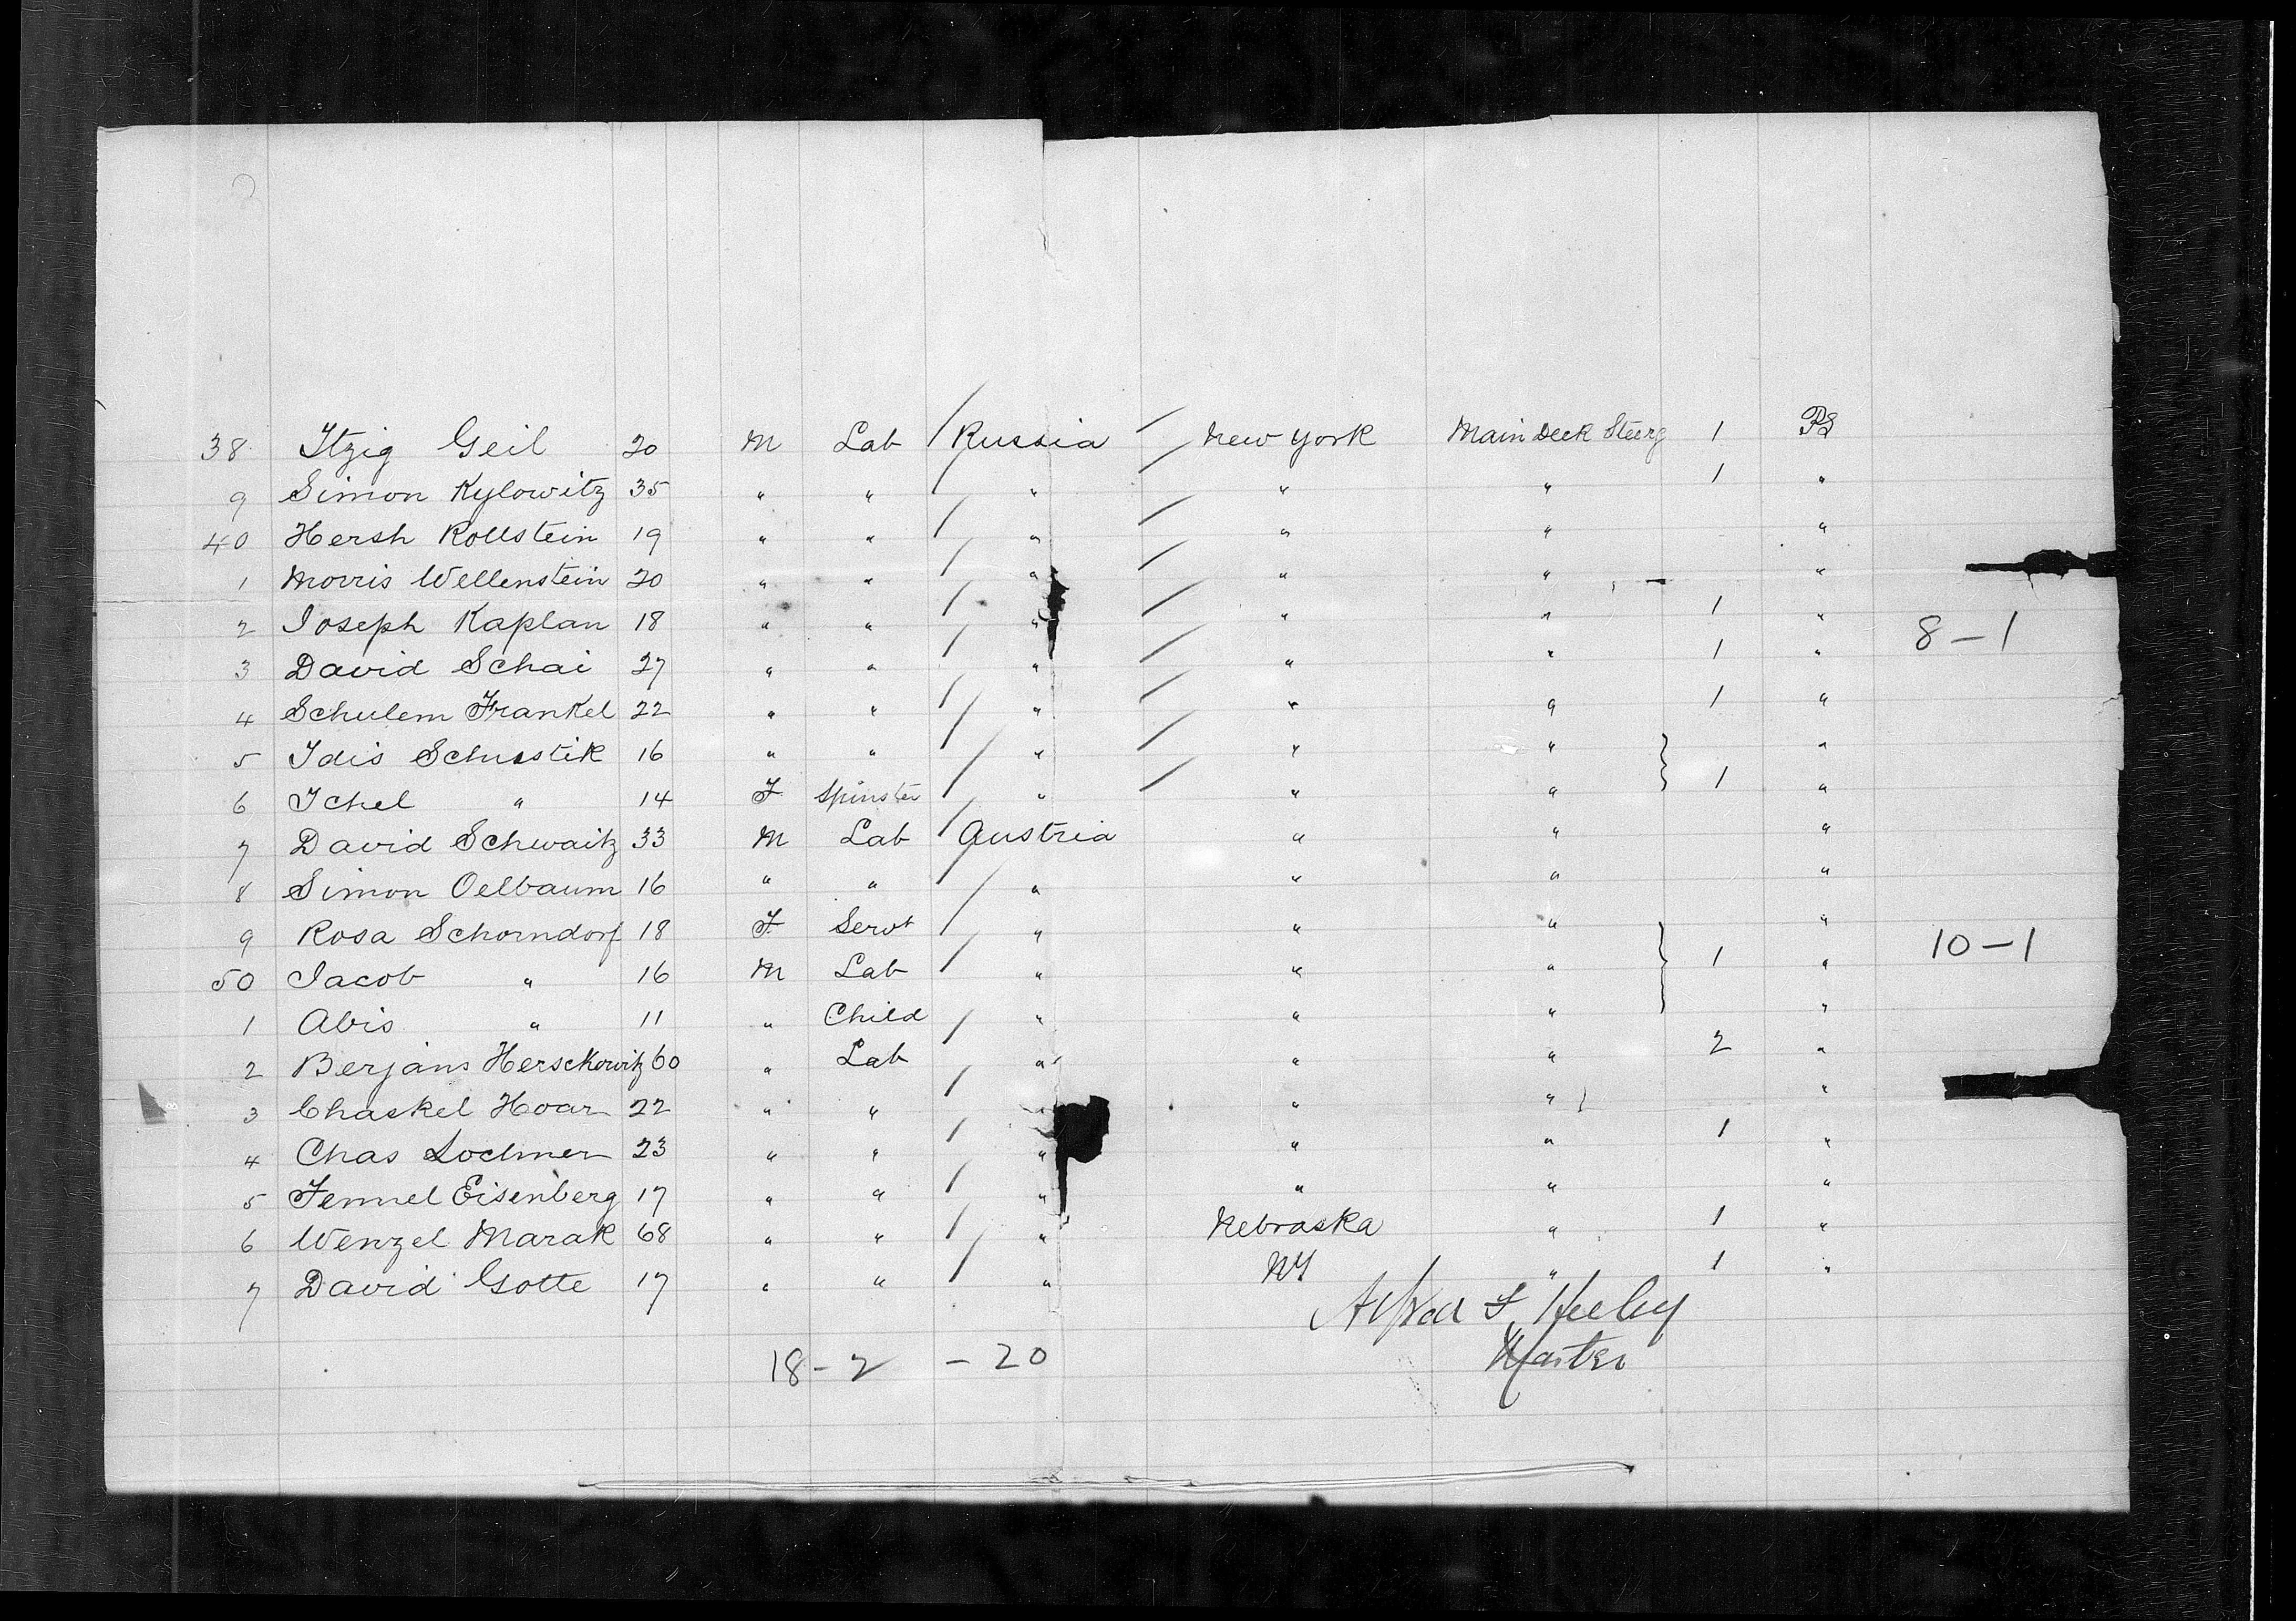 38 Itzig Geil 20 M Lab Russia New York Main Deck Steerg 1 PS
9 Simon Kylowitz 35 " " " " " 1 "
40 Hersh Rollstein 19 " " " " " "
1 Morris Wellenstein 20 " " " " " "
2 Joseph Kaplan 18 " " " " " 1 "
8-1
3 David Schai 27 " " " " " 1 "
4 Schulem Frankel 22 " " " " " 1 "
5 Idis Schusstik 16 " " " " " "
6 Ichel " 14 F Spinster " " " 1 "
7 David Schwaitz 33 M Lab Austria " " "
8 Simon Oelbaum 16 " " " " " "
9 Rosa Schorndorf 18 F Servt " " " "
10-1
50 Jacob " 16 M Lab " " " 1 "
1 Abis " 11 " Child " " " "
2 Berjans Hersckowitz 60 " Lab " " " 2 "
3 Chaskel Hoar 22 " " " " " "
4 Chas 23 " " " " " 1 "
5 Eisenberg 17 " " " " " "
6 Wenzel Marak 68 " " " Nebraska " 1 "
7 David Gotte 17 " " " NY " 1 "
Master
18-2 - 20